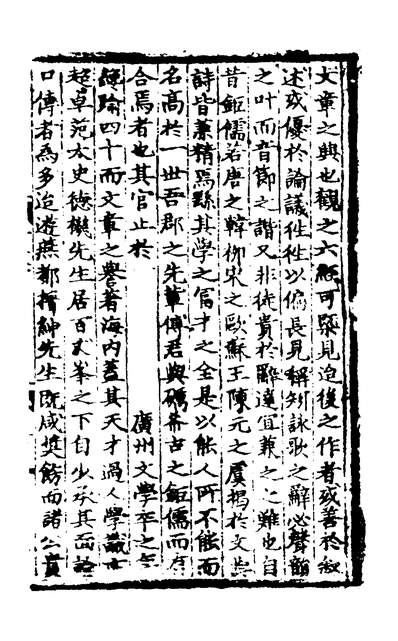 文章之與也觀之六經可槩見迨後之作者或善於叙
述或優於論議徃徃以偏長見稱矧詠歌之辭必聲韻
之叶而音節之諧又非徒貴於辭達宜兼之之難也自
昔鉅儒若唐之韓栁宋之歐蘇王陳元之虞揭於文與
詩皆兼精焉繇其學之富才之全是以能人所不能而
名高於一世吾郡之先軰傅君與礪希古之鉅儒而庶
合焉者也其官止於 廣州文學卒之年
纔踰四十而文章之譽著海内蓋其天才過人學識
超卓范太史徳機先生居百丈峯之下自少承其面論
口傳者為多迨逰燕都搢紳先生既咸奬飭而諸公貴